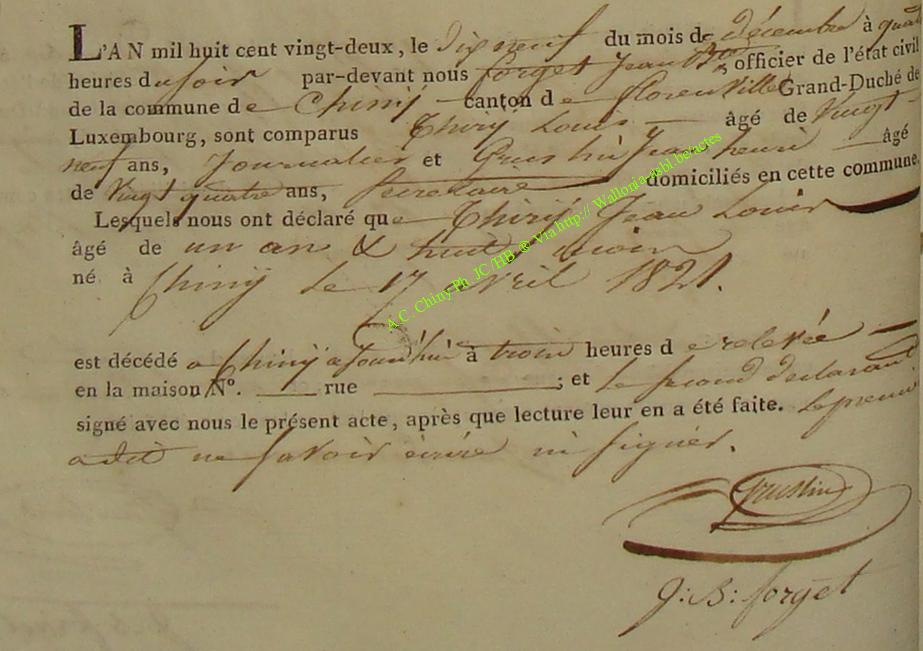 L'AN mil huit cent vingt-deux, le dixneuf du mois de décembre à quatre
heures du soir par-devant nous forget Jean Bte, officier de l'état civil
de la commune de Chiny canton de florenville Grand-Duché de
Luxembourg, sont comparus Thiry Louis âgé de Vingt
neuf ans, Journalier et Grustin Jean henri âgé
de Vingt quatre ans, Secretaire domiciliés en cette commune.
Lesquels nous ont déclaré que Thiry Jean Louis
âgé de un an & huit mois
né à Chiny le 17 avril 1821.
est décédé a Chiny aujourd'hui à trois heures de relevée
en la maison N°. rue ; et le second declarant
signé avec nous le présent acte, après que lecture leur en a été faite. le premier
a dit ne savoir écrire ni signer.
Grustin
J: B: forget
A.C. Chiny Ph. JC/HB ® Via http:// Wallonia asbl.be/actes